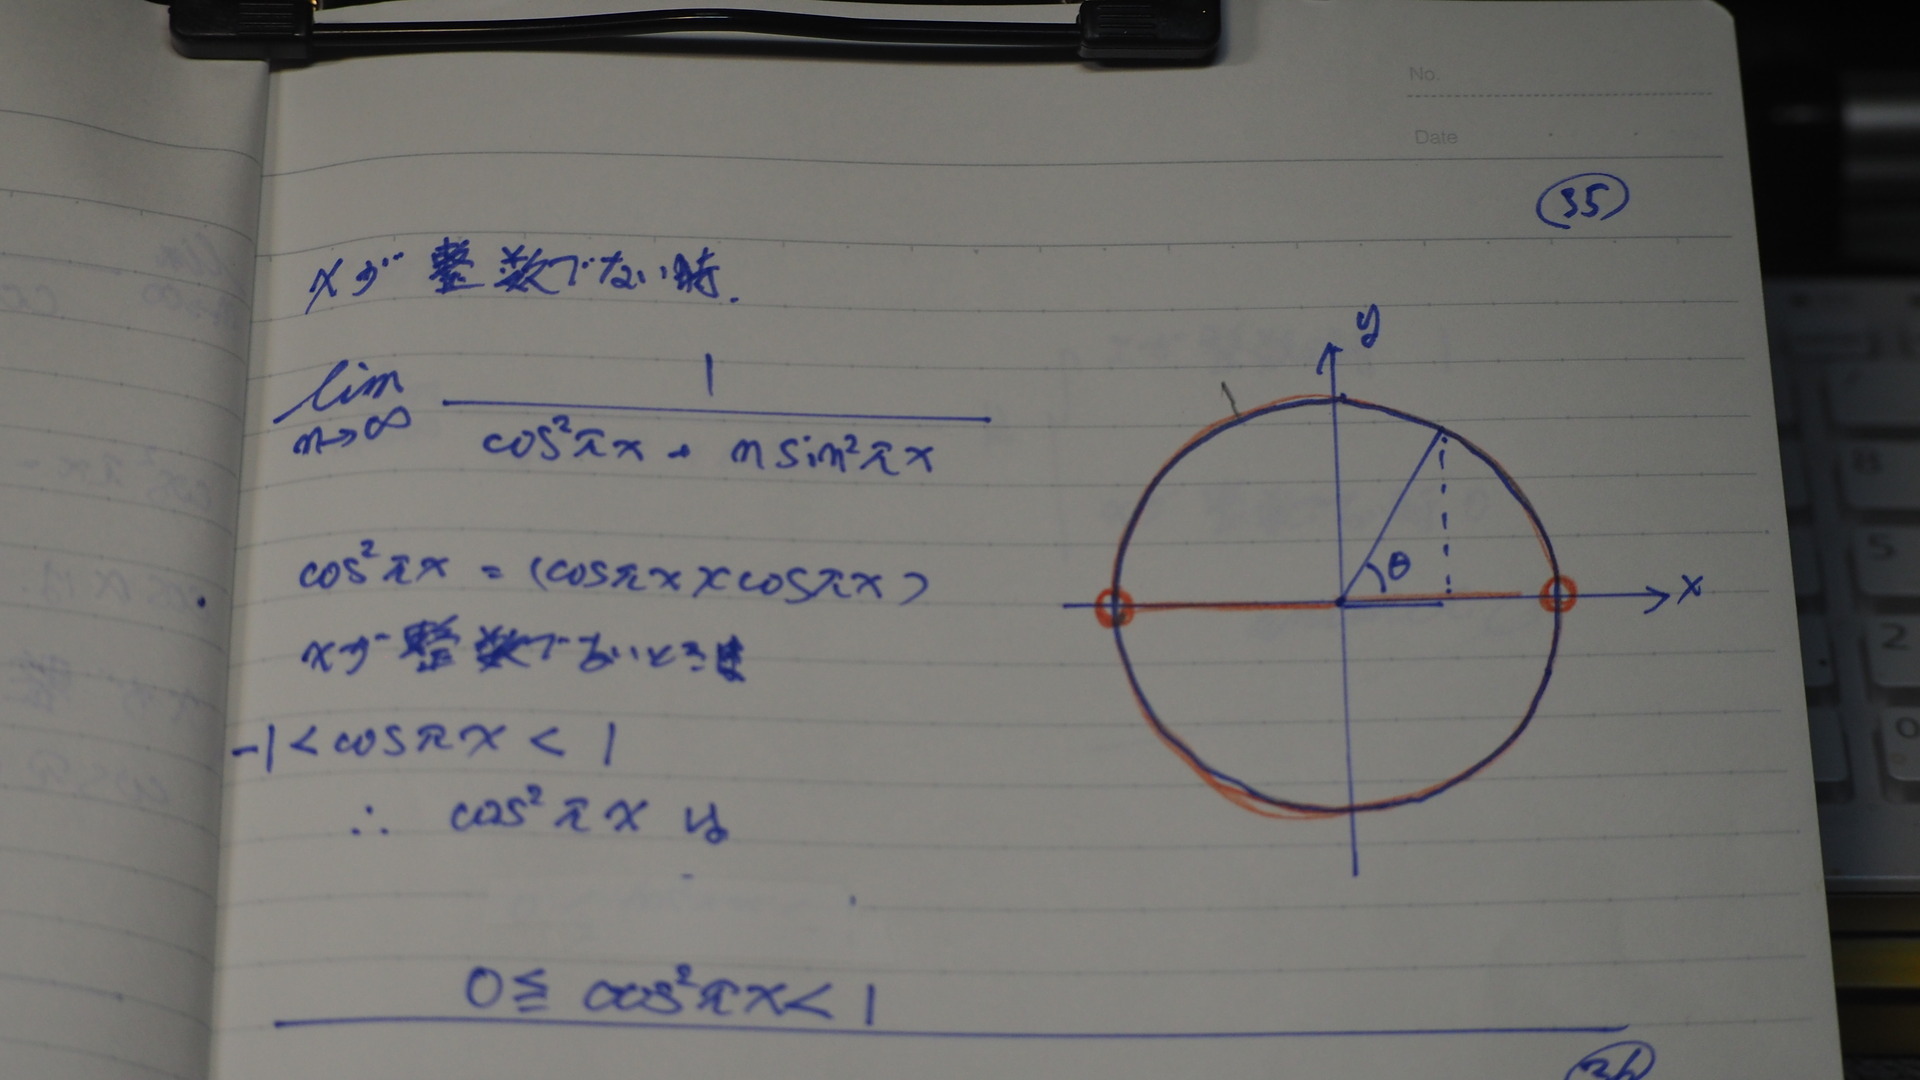 No.
Date
35
xが整数でない時.
lim n→∞ 1 / cos²πx + n sin²πx
cos²πx = (cosπx × cosπx)
xが整数でないときは
-1 < cosπx < 1
∴ cos²πx は
0 ≦ cos²πx < 1
y
θ
x
8
5
2
0